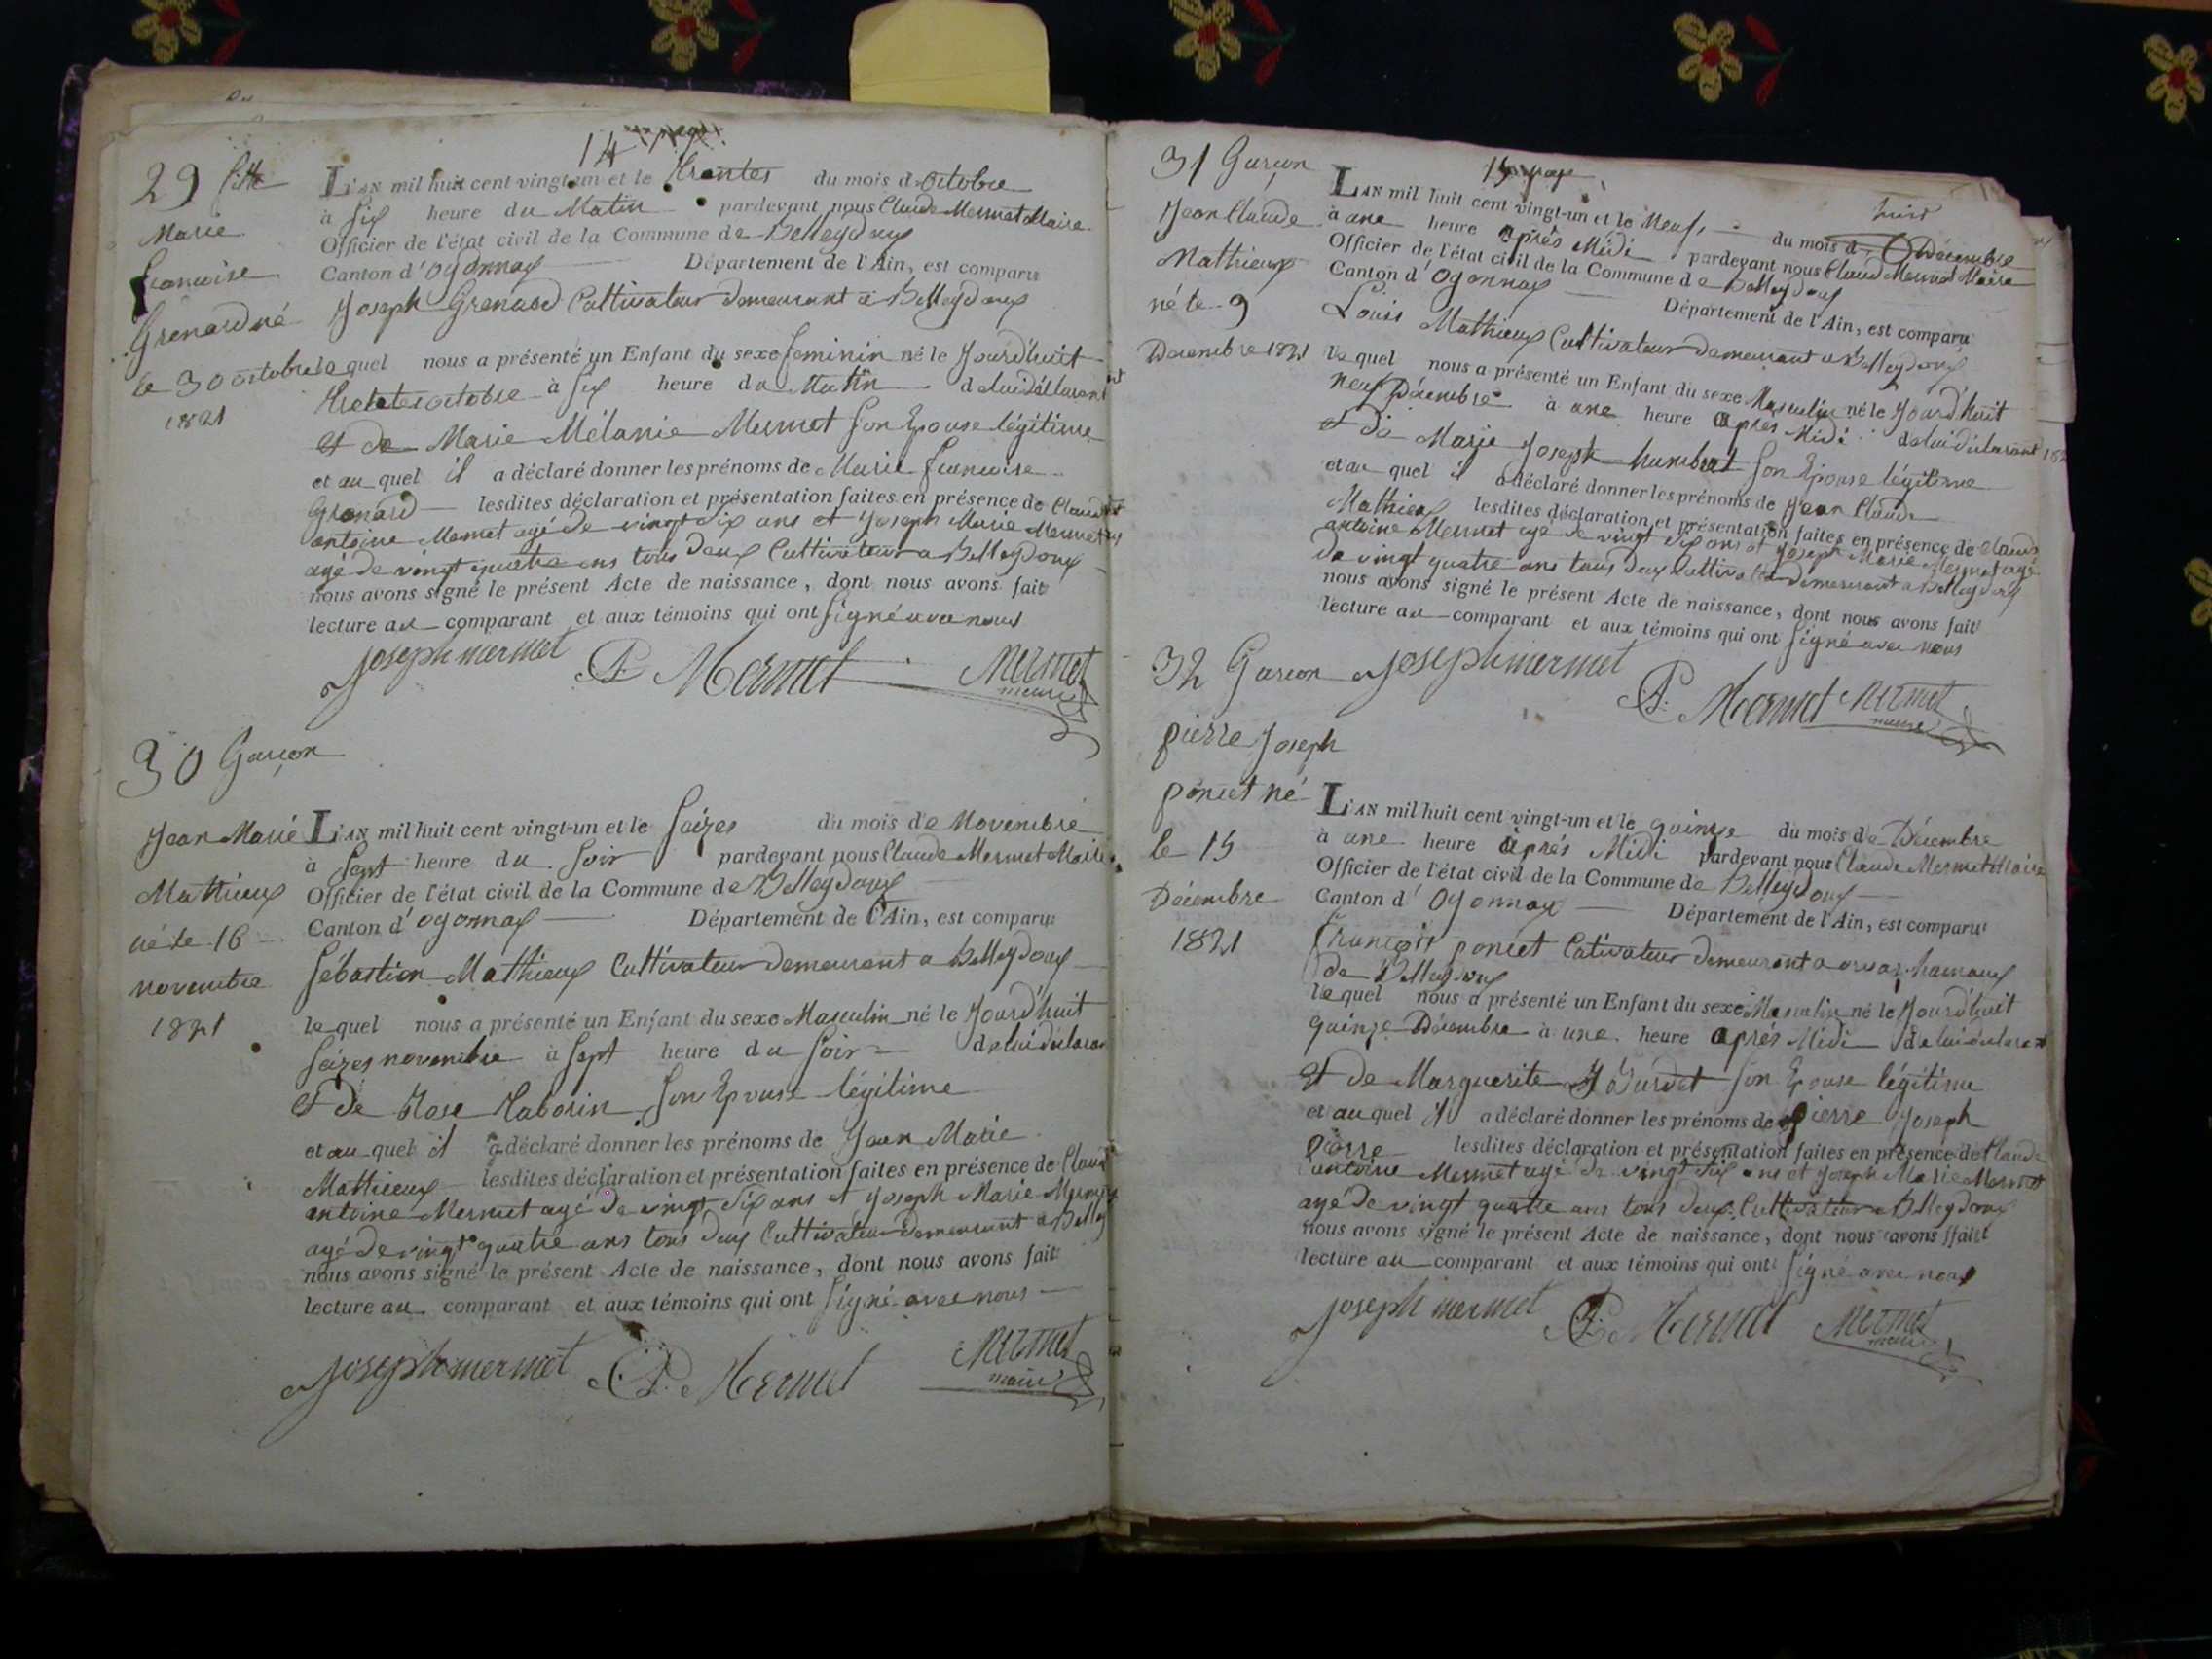 14
29 fille
Marie
françoise
Grenard né
le 30 octobre
1821
L'AN mil huit cent vingt-un et le Trentes du mois d'octobre
à six heure du Matin pardevant nous Claude Mermet Maire
Officier de l'état civil de la Commune de Belleydoux
Canton d'Oyonnax Département de l'Ain, est comparu
Joseph Grenard Cultivateur demeurant à Belleydoux
lequel nous a présenté un Enfant du sexe feminin né le Jourd'huit
octobre à six heure du Matin de lui déclarant
et de Marie Mélanie Mermet son Epouse légitime
et au quel il a déclaré donner les prénoms de Marie françoise
Grenard lesdites déclaration et présentation faites en présence de Claude
antoine Mermet agé de vingt six ans et Joseph Marie Mermet
agé de vingt quatre ans tous deux Cultivateur a Belleydoux
nous avons signé le présent Acte de naissance, dont nous avons fait
lecture au comparant et aux témoins qui ont signé avec nous
Joseph mermet Mermet Mermet
maire
30 Garçon
Jean Marie
Mathieux
né le 16
novembre
1821
L'AN mil huit cent vingt-un et le seizes du mois de Novembre
à sept heure du soir pardevant nous Claude Mermet Maire
Officier de l'état civil de la Commune de Belleydoux
Canton d'oyonnax Département de l'Ain, est comparu
sébastien Mathieux Cultivateur demeurant a Belleydoux
lequel nous a présenté un Enfant du sexe Masculin né le Jourd'huit
seizes novembre à sept heure du soir de lui déclarant
et de Rose son Epouse légitime
et au quel il a déclaré donner les prénoms de Jean Marie
Mathieux lesdites déclaration et présentation faites en présence de Claude
antoine Mermet agé de vingt six ans et Joseph Marie Mermet
agé de vingt quatre ans tous deux Cultivateur demeurant a Belley
nous avons signé le présent Acte de naissance, dont nous avons fait
lecture au comparant et aux témoins qui ont signé avec nous
Joseph mermet Mermet Mermet
maire
15 page
31 Garçon
Jean Claude
Mathieux
né le 9
Decembre 1821
L'AN mil huit cent vingt-un et le Neufs du mois de Décembre
à une heure après Midi pardevant nous Claude Mermet Maire
Officier de l'état civil de la Commune de Belleydoux
Canton d'Oyonnax Département de l'Ain, est comparu
Louis Mathieux Cultivateur demeurant a Belleydoux
lequel nous a présenté un Enfant du sexe Masculin né le Jourd'huit
neuf Décembre à une heure après Midi de lui déclarant
et de Marie Joseph humbert son Epouse légitime
et au quel il a déclaré donner les prénoms de Jean Claude
Mathieux lesdites déclaration et présentation faites en présence de Claude
antoine Mermet agé de vingt six ans et Joseph Marie Mermet agé
de vingt quatre ans tous deux Cultivateur demeurant a Belleydoux
nous avons signé le présent Acte de naissance, dont nous avons fait
lecture au comparant et aux témoins qui ont signé avec nous
Joseph mermet Mermet Mermet
maire
32 Garçon
pierre Joseph
poncet né
le 15
Décembre
1821
L'AN mil huit cent vingt-un et le quinze du mois de Décembre
à une heure après Midi pardevant nous Claude Mermet Maire
Officier de l'état civil de la Commune de Belleydoux
Canton d'Oyonnax Département de l'Ain, est comparu
françois poncet Cativateur demeurant a orvaz hamaux
de Belleydoux
lequel nous a présenté un Enfant du sexe Masculin né le Jourd'huit
quinze Décembre à une heure après Midi de lui déclarant
et de Marguerite Bourdet son Epouse légitime
et au quel il a déclaré donner les prénoms de pierre Joseph
lesdites déclaration et présentation faites en présence de Claude
antoine Mermet agé de vingt six ans et Joseph Marie Mermet
agé de vingt quatre ans tous deux Cultivateur a Belleydoux
nous avons signé le présent Acte de naissance, dont nous avons fait
lecture au comparant et aux témoins qui ont signé avec nous
Joseph mermet Mermet Mermet
maire